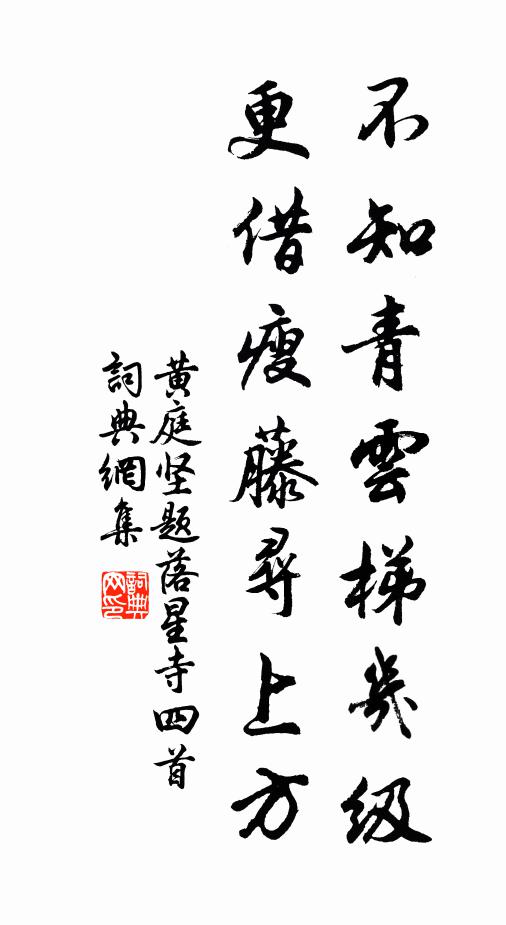 不知青雲梯幾級
更借瘦藤尋上方
黃庭坚题落星寺四首
詞典網集
詞典網印